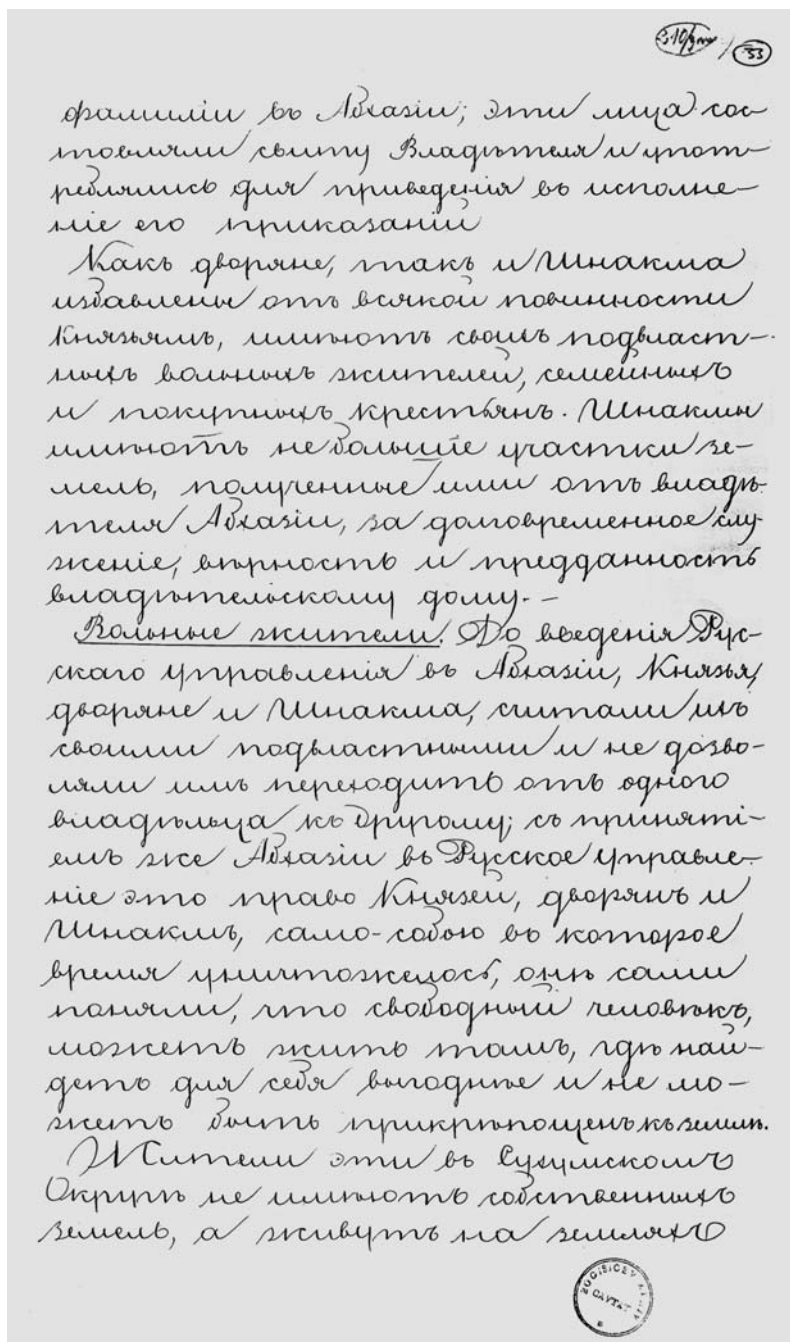 33
фамиліи въ Абхазіи; эти лица сос-
товляли свиту Владѣтеля и упот-
реблялись для приведенія въ исполне-
ніе его приказаній
Какъ дворяне, такъ и Шнакма
избавлены отъ всякой повинности
Князьямъ, имѣютъ своихъ подвласт-
ныхъ вольныхъ жителей, семейныхъ
и покупныхъ крестьянъ. Шнакмы
имѣютъ небольшіе участки зе-
мель, полученные ими отъ владѣ-
теля Абхазіи, за долговременное слу-
женіе, вѣрность и предданность
владѣтельскому дому. -
Вольные жители. До введенія Рус-
скаго управленія въ Абхазіи, Князья,
дворяне и Шнакма, считали ихъ
своими подвластными и не дозво-
ляли имъ переходить отъ одного
владѣльца къ другому; съ приняті-
емъ же Абхазіи въ Русское управле-
ніе это право Князей, дворянъ и
Шнакмъ, само-собою въ которое
время уничтожелось, онѣ сами
поняли, что свободный человѣкъ,
можетъ жить тамъ, гдѣ най-
детъ для себя выгоднѣе и не мо-
жетъ быть прикрѣпощенъ къ землѣ.
Жители эти въ Сухумскомъ
Округѣ не имѣютъ собственныхъ
земель, а живутъ на земляхъ
CAVTAT